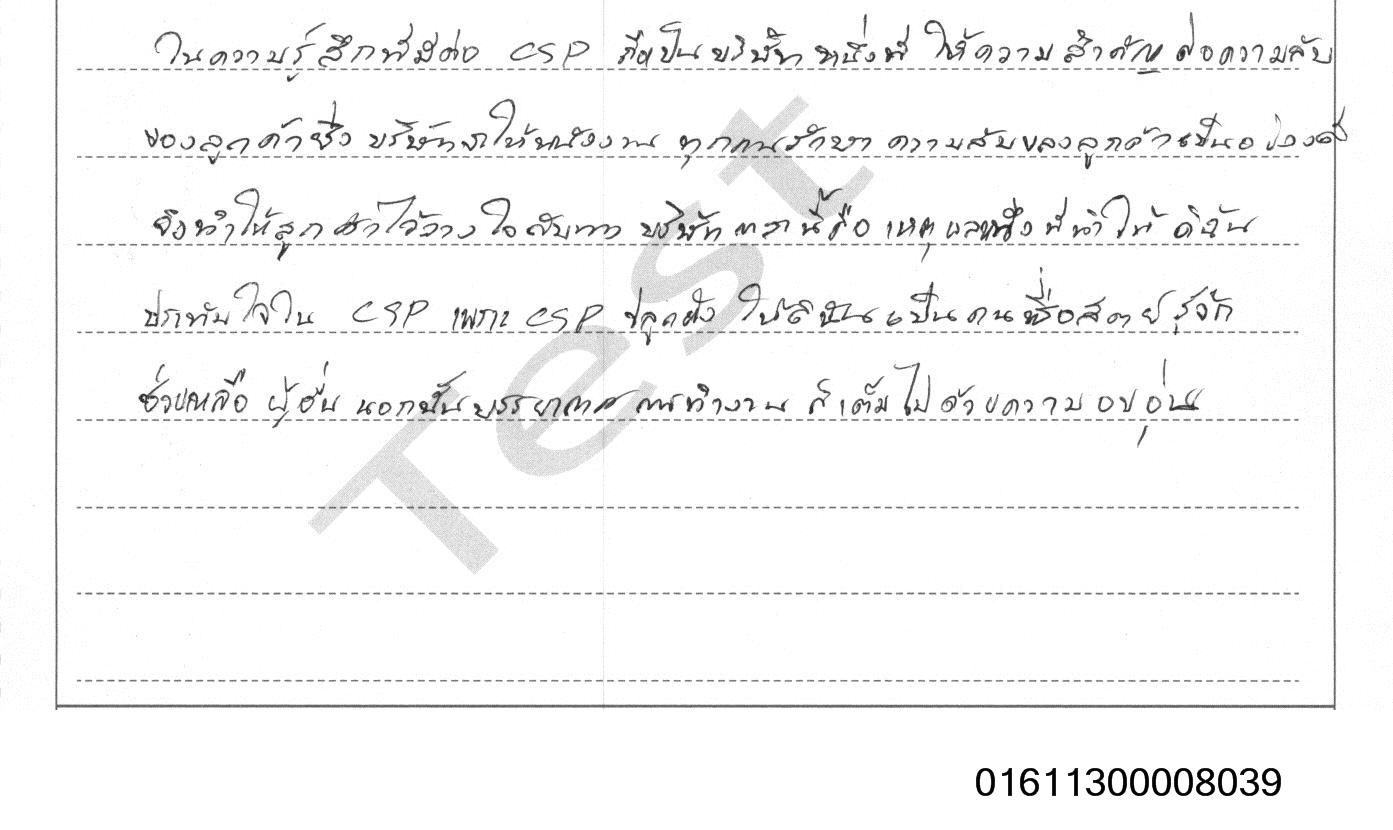 ในความรู้สึกที่มีต่อ CSP ถือเป็นบริษัทหนึ่งที่ ให้ความสำคัญต่อความลับ
ของลูกค้าซึ่ง บริษัทจะให้พนักงาน ทุกคนรักษา ความลับของลูกค้าเป็นอย่างดี
จึงทำให้ลูกค้าไว้วางใจกับทาง บริษัท เรานี้คือ เหตุผลหนึ่งที่ทำให้ ดิฉัน
ประทับใจใน CSP เพราะ CSP ปลูกฝัง ให้ดิฉันเป็นคนซื่อสัตย์รู้จัก
ช่วยเหลือ ผู้อื่น นอกนั้นบรรยากาศ การทำงาน ก็เต็มไปด้วยความอบอุ่น
Test
01611300008039